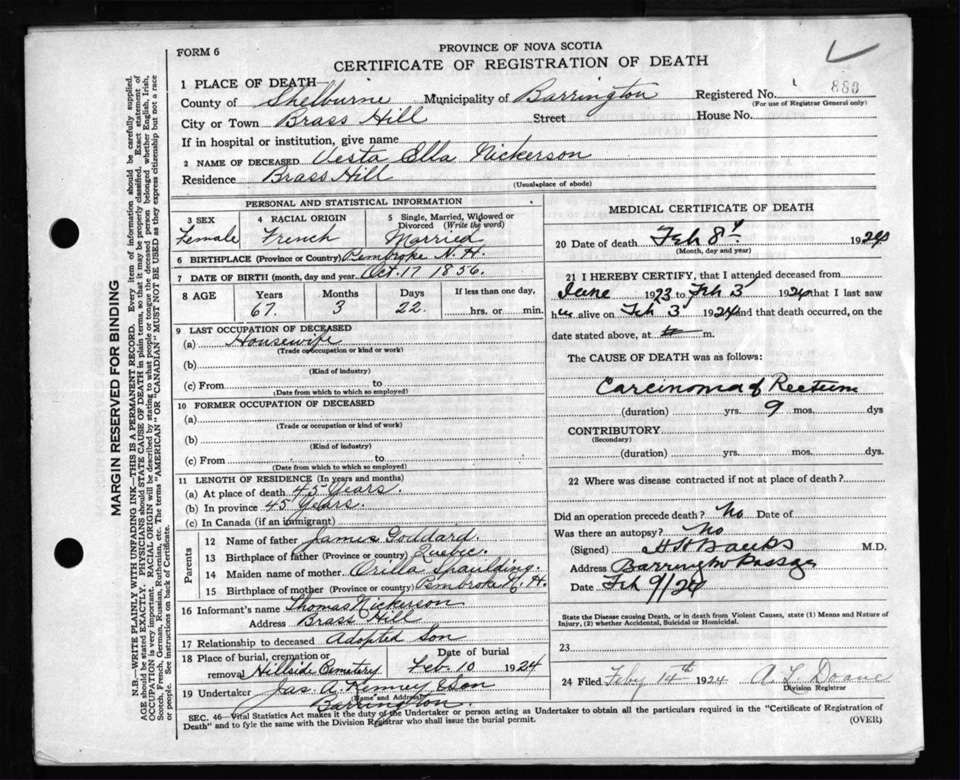 FORM 6
PROVINCE OF NOVA SCOTIA
CERTIFICATE OF REGISTRATION OF DEATH
1 PLACE OF DEATH
County of Shelburne Municipality of Barrington Registered No. 880
(For use of Registrar General only)
City or Town Brass Hill Street House No.
If in hospital or institution, give name
2 NAME OF DECEASED Vesta Ella Nickerson
Residence Brass Hill
(Usual place of abode)
PERSONAL AND STATISTICAL INFORMATION
3 SEX 4 RACIAL ORIGIN 5 Single, Married, Widowed or Divorced (Write the word)
Female French Married
6 BIRTHPLACE (Province or Country) Pembroke N.H.
7 DATE OF BIRTH (month, day and year) Oct. 17 1856.
8 AGE Years Months Days If less than one day,
67. 3 22. hrs. or min.
9 LAST OCCUPATION OF DECEASED
(a) Housewife
(Trade or occupation or kind or work)
(b)
(Kind of industry)
(c) From to
(Date from which to which so employed)
10 FORMER OCCUPATION OF DECEASED
(a)
(Trade or occupation or kind of work)
(b)
(Kind of industry)
(c) From to
(Date from which to which so employed)
11 LENGTH OF RESIDENCE (In years and months)
(a) At place of death 45 Years.
(b) In province 45 Years.
(c) In Canada (if an immigrant)
Parents
12 Name of father James Goddard.
13 Birthplace of father (Province or country) Quebec.
14 Maiden name of mother Orilla Spaulding.
15 Birthplace of mother (Province or country) Pembroke N.H.
16 Informant's name Thomas Nickerson
Address Brass Hill
17 Relationship to deceased Adopted Son
18 Place of burial, cremation or removal Hillside Cemetery Date of burial Feb. 10 1924
19 Undertaker Jas. A. Kenney & Son
(Name and Address)
Barrington.
MEDICAL CERTIFICATE OF DEATH
20 Date of death Feb 8 1924
(Month, day and year)
21 I HEREBY CERTIFY, that I attended deceased from
June 1923 to Feb 3 1924 that I last saw
her alive on Feb 3 1924 and that death occurred, on the
date stated above, at m.
The CAUSE OF DEATH was as follows:
Carcinoma of Rectum
(duration) yrs. 9 mos. dys
CONTRIBUTORY
(Secondary)
(duration) yrs. mos. dys.
22 Where was disease contracted if not at place of death?
Did an operation precede death? No Date of
Was there an autopsy? No
(Signed) H H Banks M.D.
Address Barrington Passage
Date Feb 9/24
State the Disease causing Death, or in death from Violent Causes, state (1) Means and Nature of Injury, (2) whether Accidental, Suicidal or Homicidal.
23
24 Filed Feby 14th 1924 A. L. Doane
Division Registrar
SEC. 46—Vital Statistics Act makes it the duty of the Undertaker or person acting as Undertaker to obtain all the particulars required in the "Certificate of Registration of
Death" and to fyle the same with the Division Registrar who shall issue the burial permit.
(OVER)
MARGIN RESERVED FOR BINDING
N.B.—WRITE PLAINLY WITH UNFADING INK—THIS IS A PERMANENT RECORD. Every item of information should be carefully supplied.
AGE should be stated EXACTLY. PHYSICIANS should STATE CAUSE OF DEATH in plain terms, so that it may be properly classified. Exact statement of
OCCUPATION is very important. RACIAL ORIGIN will be described by stating to what people or tongue the deceased person belonged whether English, Irish,
Scotch, French, German, Russian, Ruthenian, etc. The terms "AMERICAN" OR "CANADIAN" MUST NOT BE USED as they express citizenship but not a race
or people. See instructions on back of Certificate.